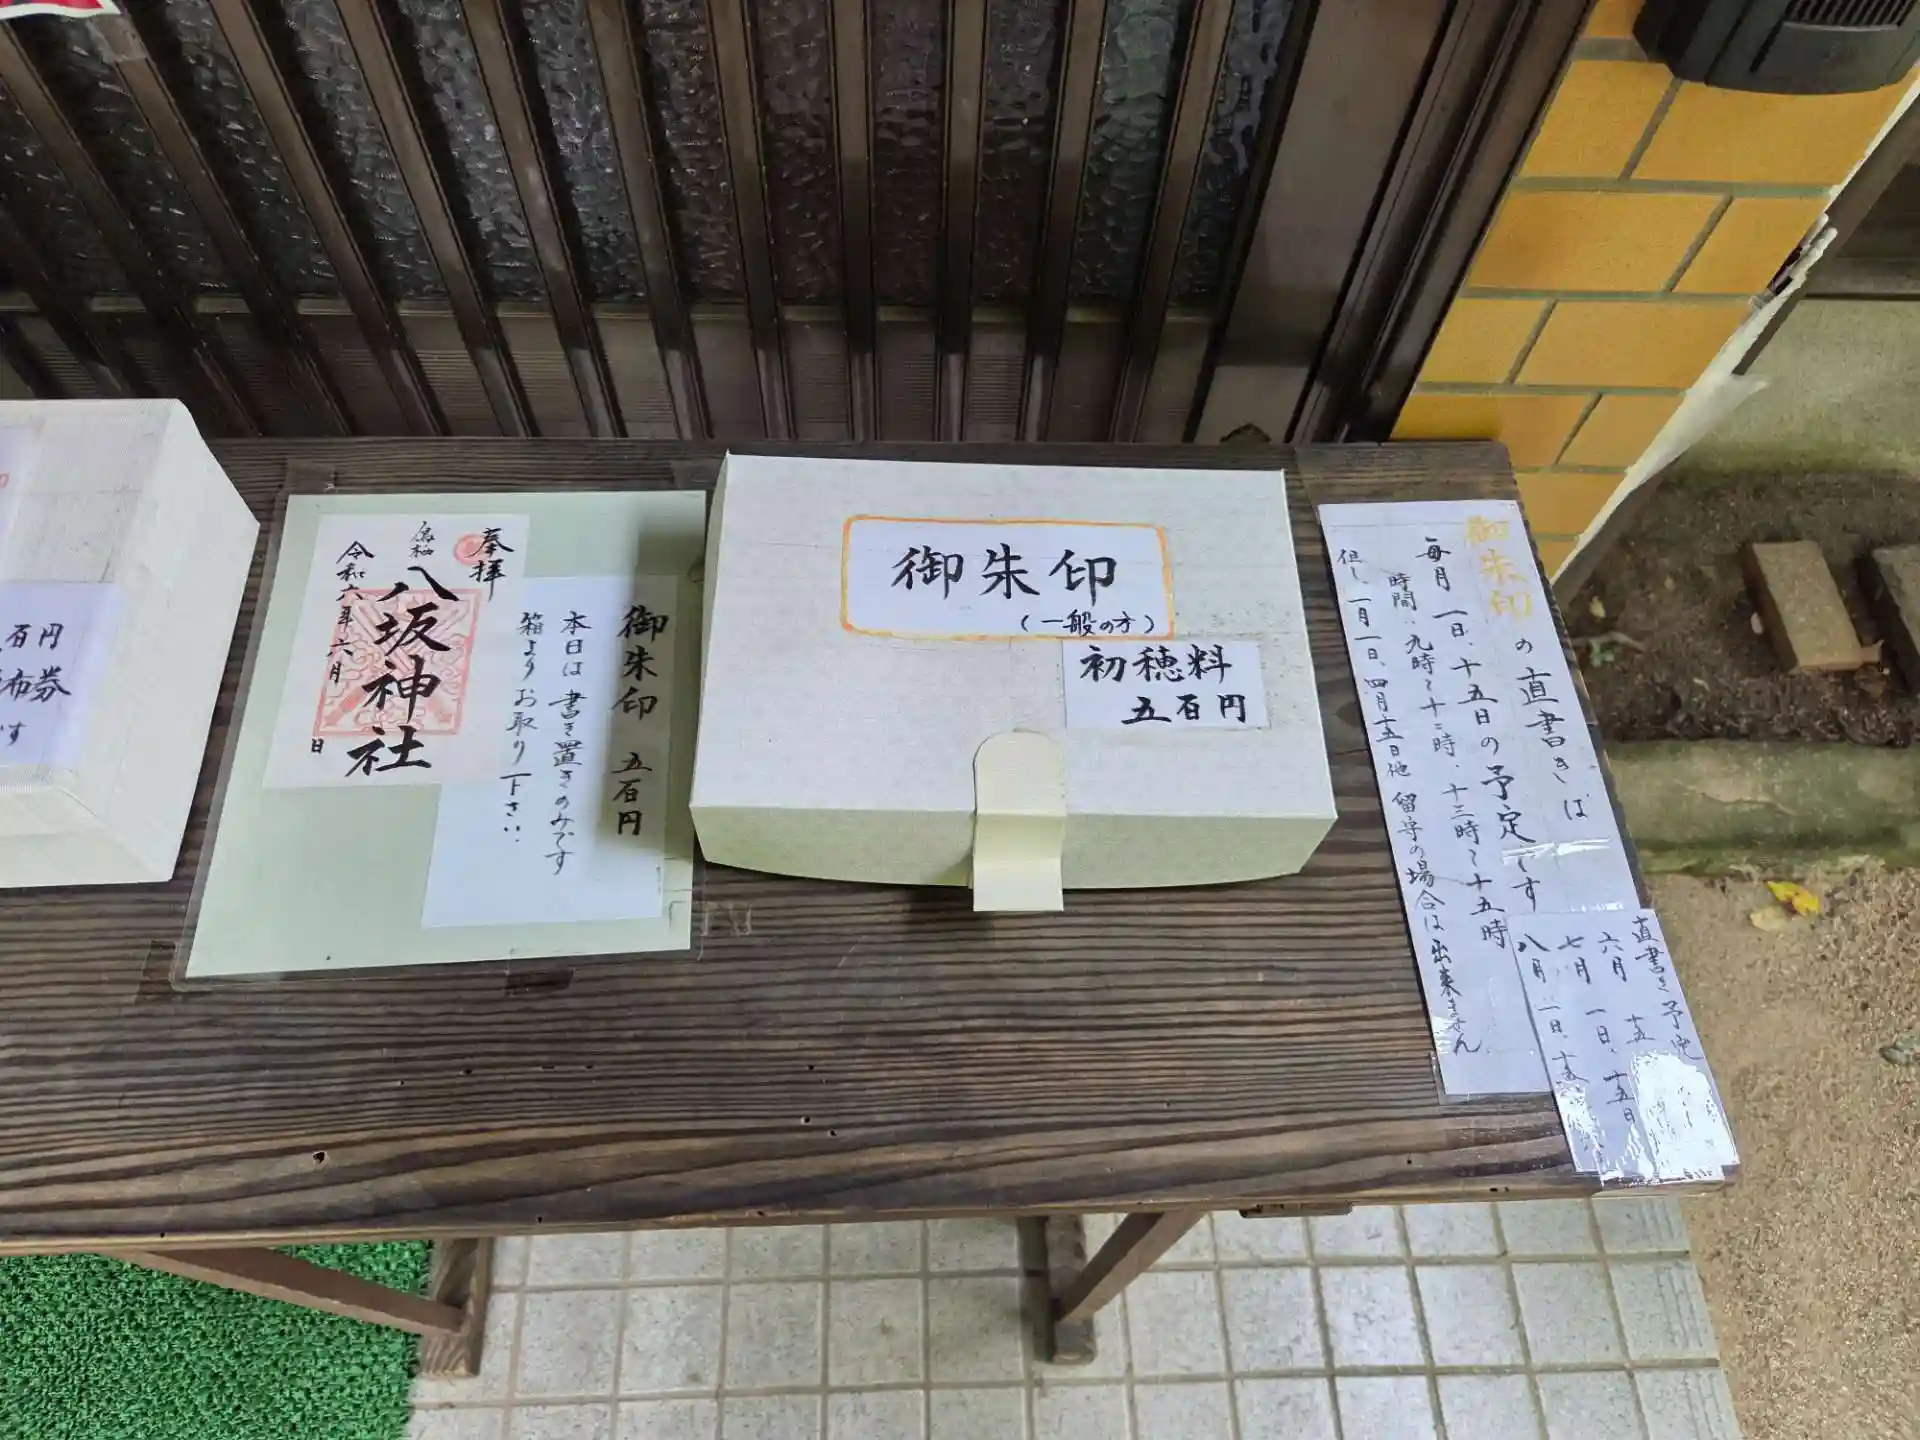 百円
布券
です
奉拝
鳥栖
八坂神社
令和六年六月
日
御朱印 五百円
本日は書き置きのみです
箱よりお取り下さい。
御朱印
(一般の方)
初穂料
五百円
御朱印の直書きは
毎月一日、十五日の予定です
時間:九時~十二時、十三時~十五時
但し一月一日、四月十五日他留守の場合は出来ません
直書き予定
六月 十五
七月 一日、十五日
八月 一日、十五